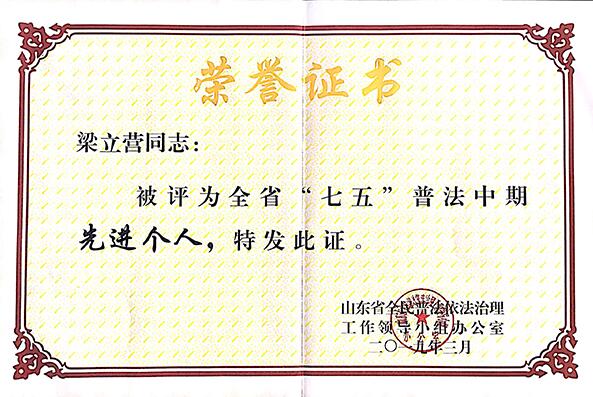 荣誉证书
梁立营同志：
被评为全省“七五”普法中期
先进个人，特发此证。
山东省全民普法依法治理
工作领导小组办公室
二〇一九年三月